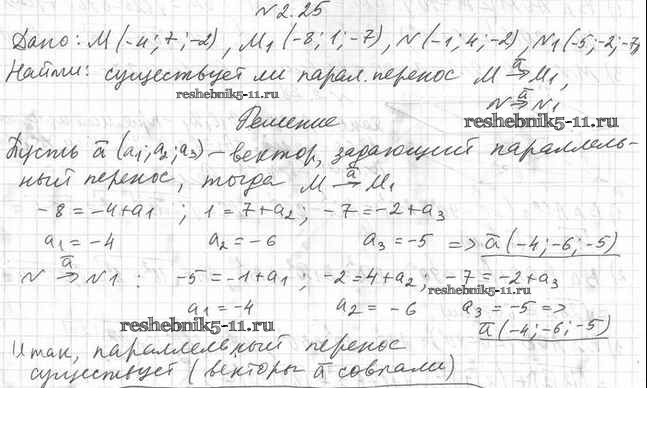 №2.25
Дано: M(-4; 7; -2), M1(-8; 1; -7), N(-1; 4; -2), N1(-5; -2; -7)
Найти: существует ли парал. перенос M →ā M1,
reshebnik5-11.ru
N →ā N1
reshebnik5-11.ru
Решение
Пусть ā(a1; a2; a3) – вектор, задающий параллель-
ный перенос, тогда M →ā M1
-8 = -4+a1 ; 1 = 7+a2 ; -7 = -2+a3
a1 = -4 a2 = -6 a3 = -5 => ā(-4; -6; -5)
N →ā N1 : -5 = -1+a1 ; -2 = 4+a2 ; -7 = -2+a3
reshebnik5-11.ru
a1 = -4 a2 = -6 a3 = -5 =>
reshebnik5-11.ru
ā(-4; -6; -5)
Итак, параллельный перенос
существует (векторы ā совпали)